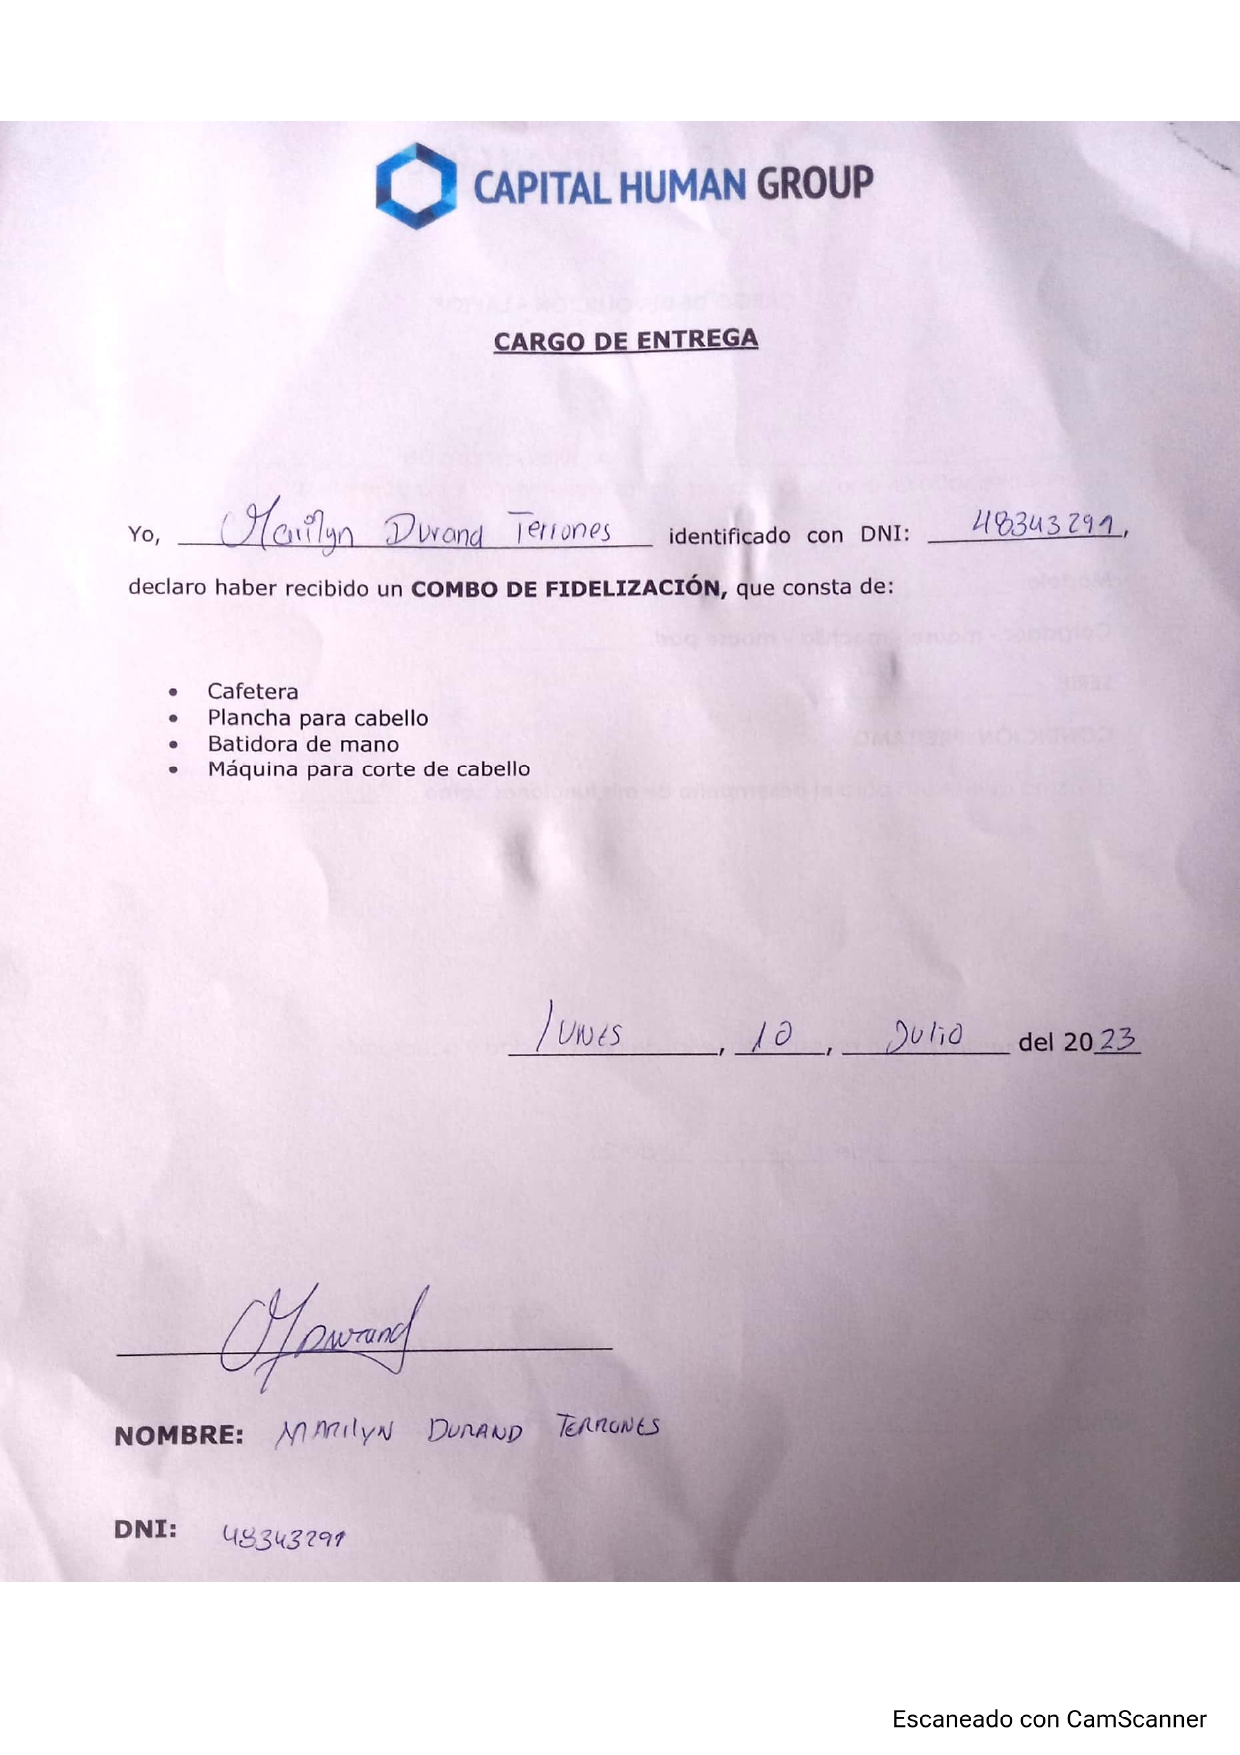 CAPITAL HUMAN GROUP
CARGO DE ENTREGA
Yo, Marilyn Durand Terrones identificado con DNI: 48343291,
declaro haber recibido un COMBO DE FIDELIZACIÓN, que consta de:
• Cafetera
• Plancha para cabello
• Batidora de mano
• Máquina para corte de cabello
Lunes, 10, Julio del 2023
MDurand
NOMBRE: MARILYN DURAND TERRONES
DNI: 48343291
Escaneado con CamScanner